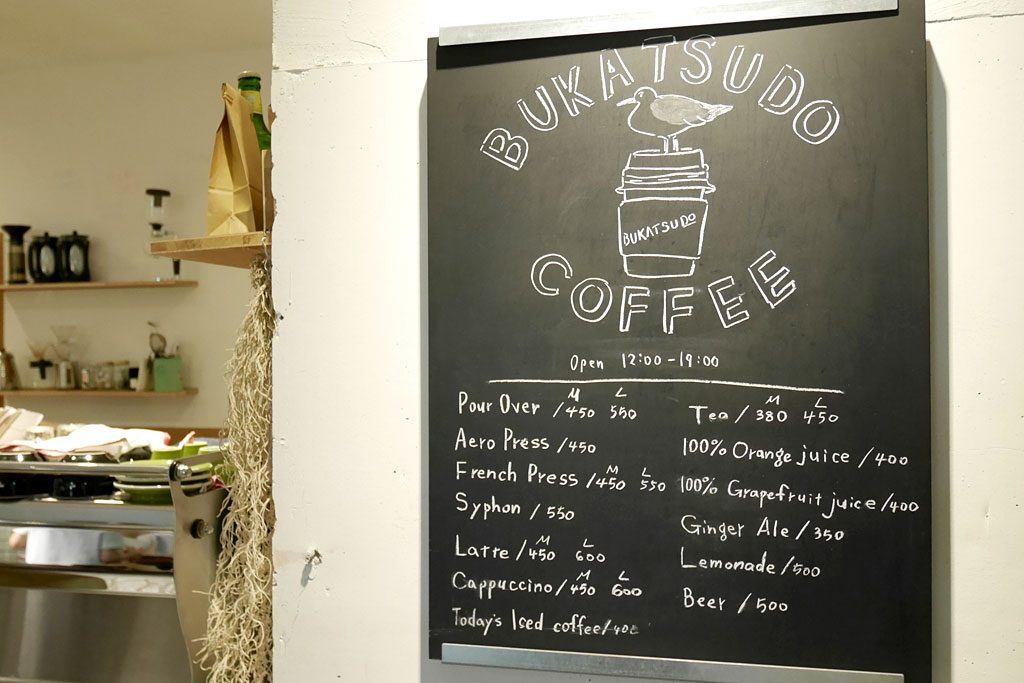 BUKATSUDO
BUKATSUDO
COFFEE
Open 12:00-19:00
M L
Pour Over / 450 550
Aero Press / 450
M L
French Press / 450 550
Syphon / 550
M L
Latte / 450 600
M L
Cappuccino / 450 600
Today's Iced coffee / 400
M L
Tea / 380 450
100% Orange juice / 400
100% Grapefruit juice / 400
Ginger Ale / 350
Lemonade / 500
Beer / 500